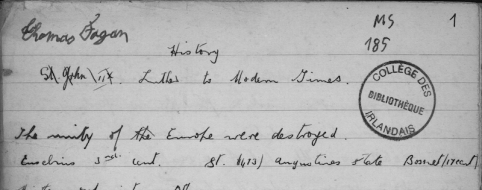 Thomas Fagan
MS 1
185
History
St. John IIX. Luther to Modern Times.
COLLÈGE DES
BIBLIOTHÈQUE
IRLANDAIS
The unity of the Europe were destroyed.
Eusebius 3rd cent. St. Augustines state Bossuet (17 cent)